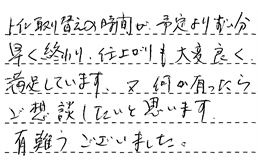 トイレ取り替えの時間が、予定よりずい分
早く終わり、仕上がりも大変良く、
満足しています。又何か有ったら
ご想談したいと思います。
有難うございました。